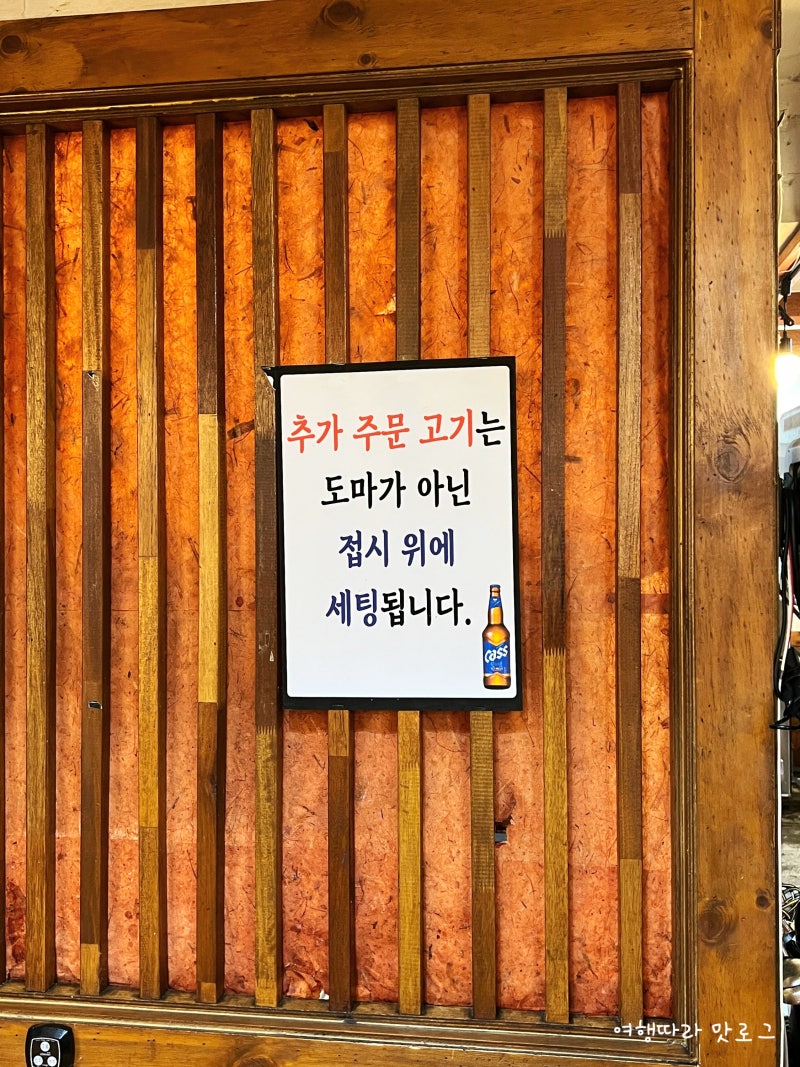 추가 주문 고기는
도마가 아닌
접시 위에
세팅됩니다.
Cass
여행따라 맛로그